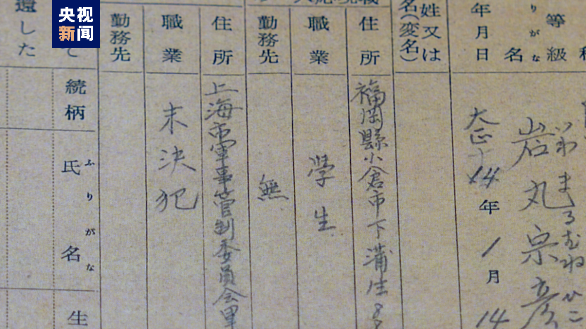 央视
新闻
いわまるむねひこ
岩丸宗彦
等級
りがな
名
年月日
大正14年1月14
姓又は
名(変名)
住所
福岡縣小倉市下蒲生8
職業
學生
勤務先
無
住所
上海市軍事管制委員会里
職業
未決犯
勤務先
て
続柄
ふりがな
氏名
生
還した